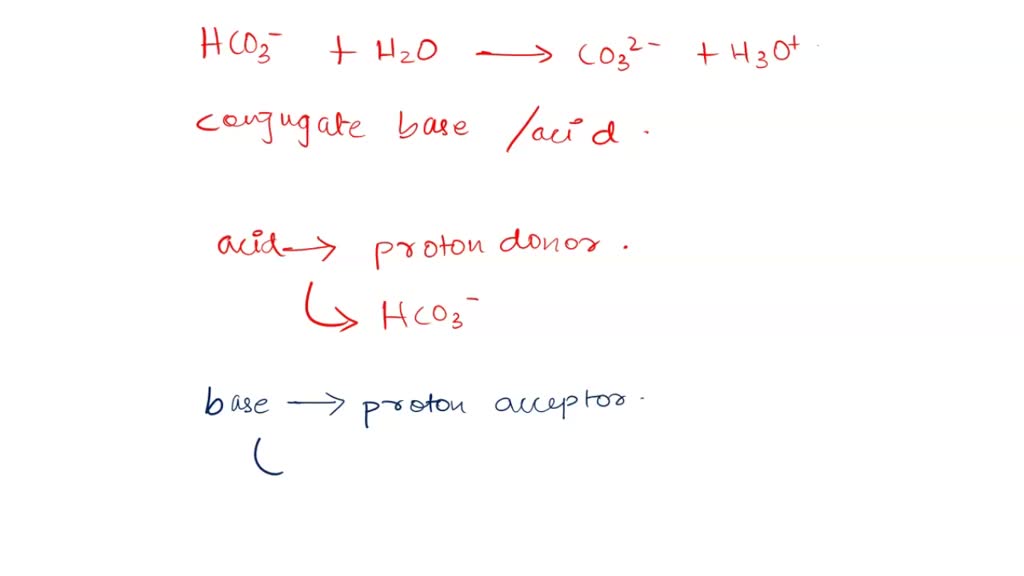 HCO₃⁻ + H₂O ⟶ CO₃²⁻ + H₃O⁺
conjugate base /acid.
acid ⟶ proton donor.
↳ HCO₃⁻
base ⟶ proton acceptor.